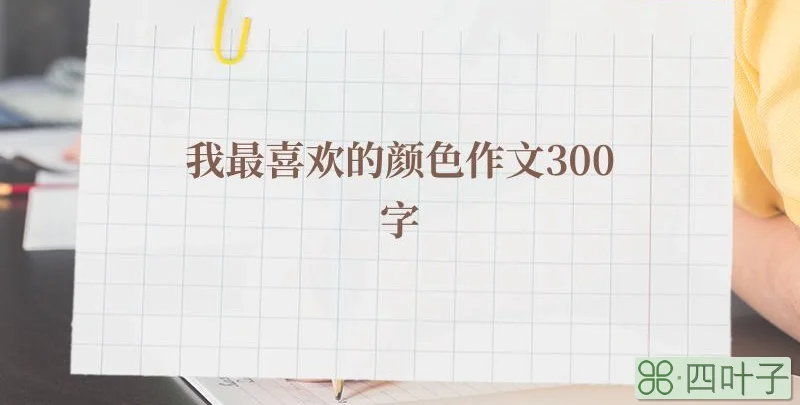 我最喜欢的颜色作文300
字
四叶子